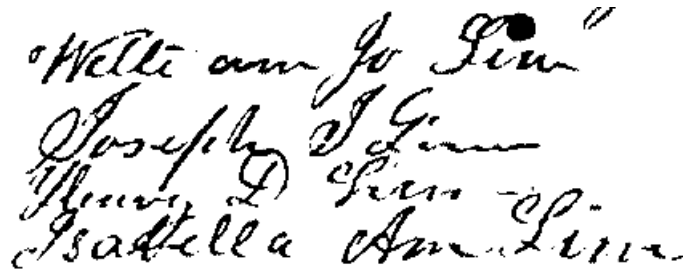 "Wette am Jo Linn"
Joseph J Linn
Henry D Linn
Isabella Ann Linn